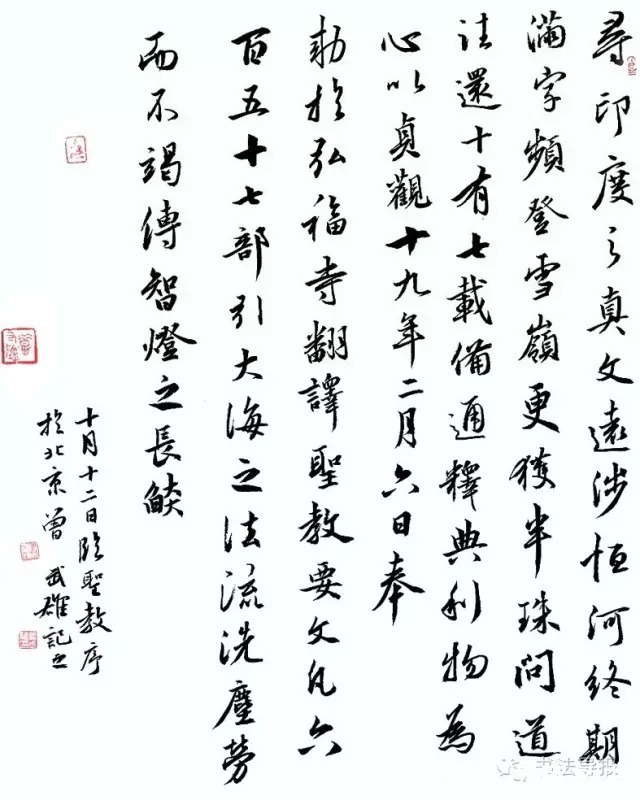 尋印度之真文遠涉恒河終期
滿字頻登雪嶺更獲半珠問道
法還十有七載備通釋典利物為
心以貞觀十九年二月六日奉
勅於弘福寺翻譯聖教要文凡六
百五十七部引大海之法流洗塵勞
而不竭傳智燈之長焰
十月十二日臨聖教序
於北京曾武雄記之
书法导报